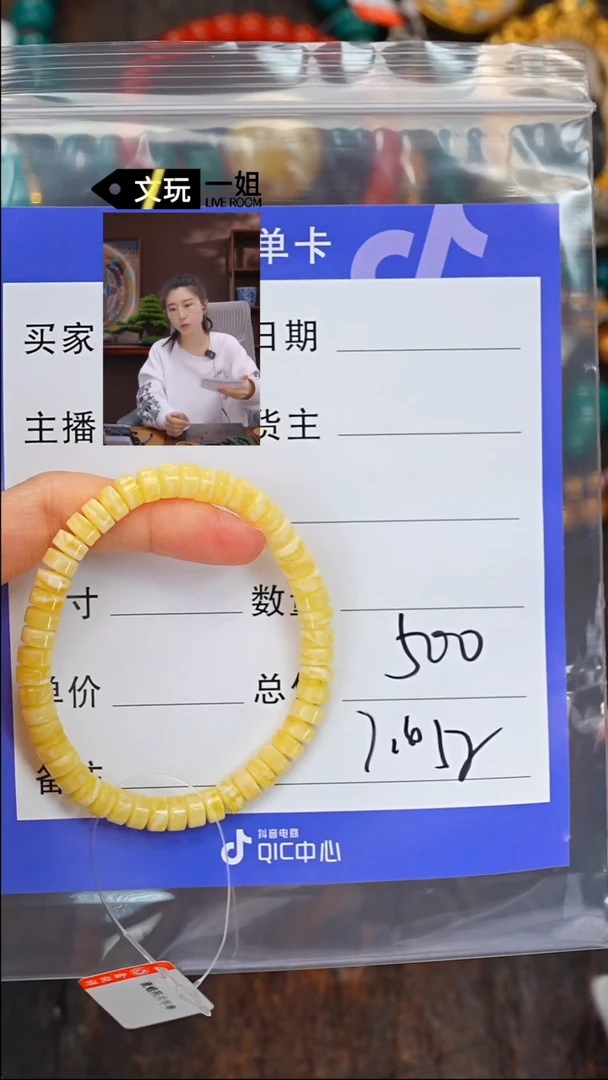 文玩一姐
LIVE ROOM
单卡
买家
日期
主播
货主
寸
数量
500
单价
总价
备注
抖音电商
QIC中心